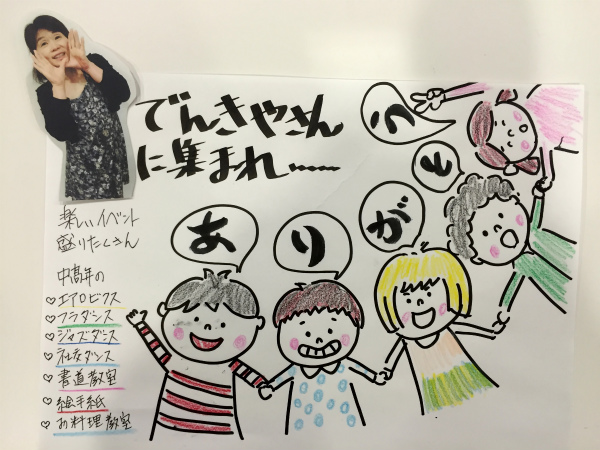 でんきやさん
に集まれ……
楽しいイベント
盛りたくさん
中高年の
♡エアロビクス
♡フラダンス
♡ジャズダンス
♡社交ダンス
♡書道教室
♡絵手紙
♡お料理教室
あ
り
が
と
う